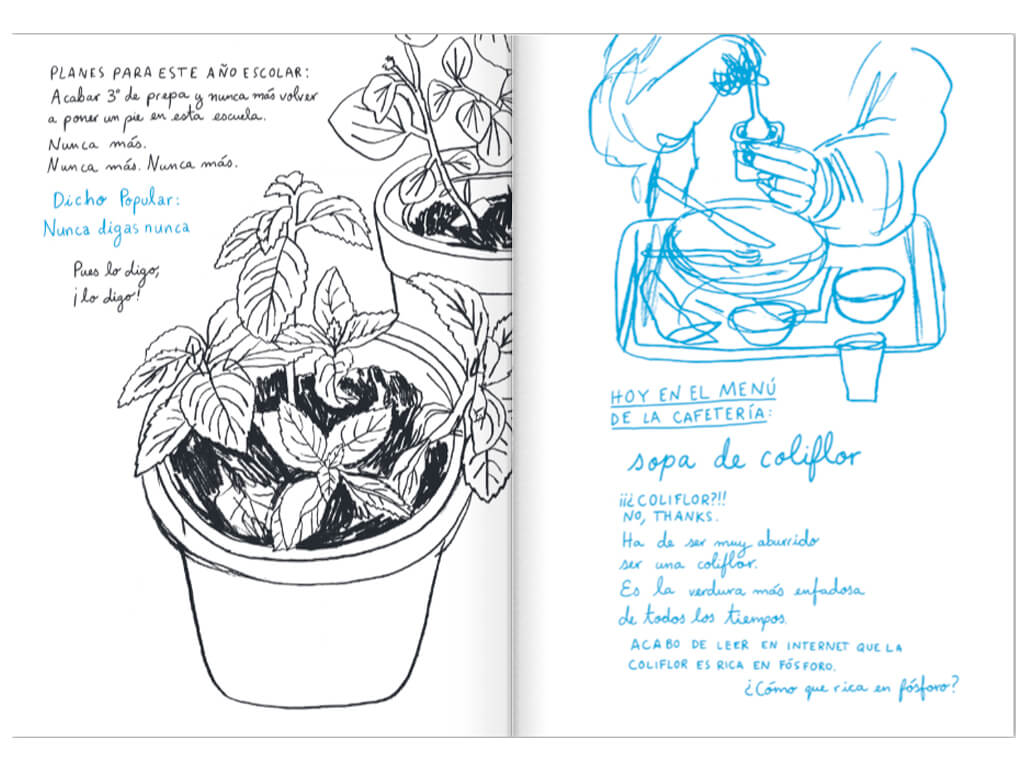 PLANES PARA ESTE AÑO ESCOLAR:
Acabar 3º de prepa y nunca más volver
a poner un pie en esta escuela.
Nunca más.
Nunca más. Nunca más.
Dicho Popular:
Nunca digas nunca
Pues lo digo,
¡lo digo!
HOY EN EL MENÚ
DE LA CAFETERÍA:
sopa de coliflor
¡¡¿COLIFLOR?!!
NO, THANKS.
Ha de ser muy aburrido
ser una coliflor.
Es la verdura más enfadosa
de todos los tiempos.
ACABO DE LEER EN INTERNET QUE LA
COLIFLOR ES RICA EN FÓSFORO.
¿Cómo que rica en fósforo?